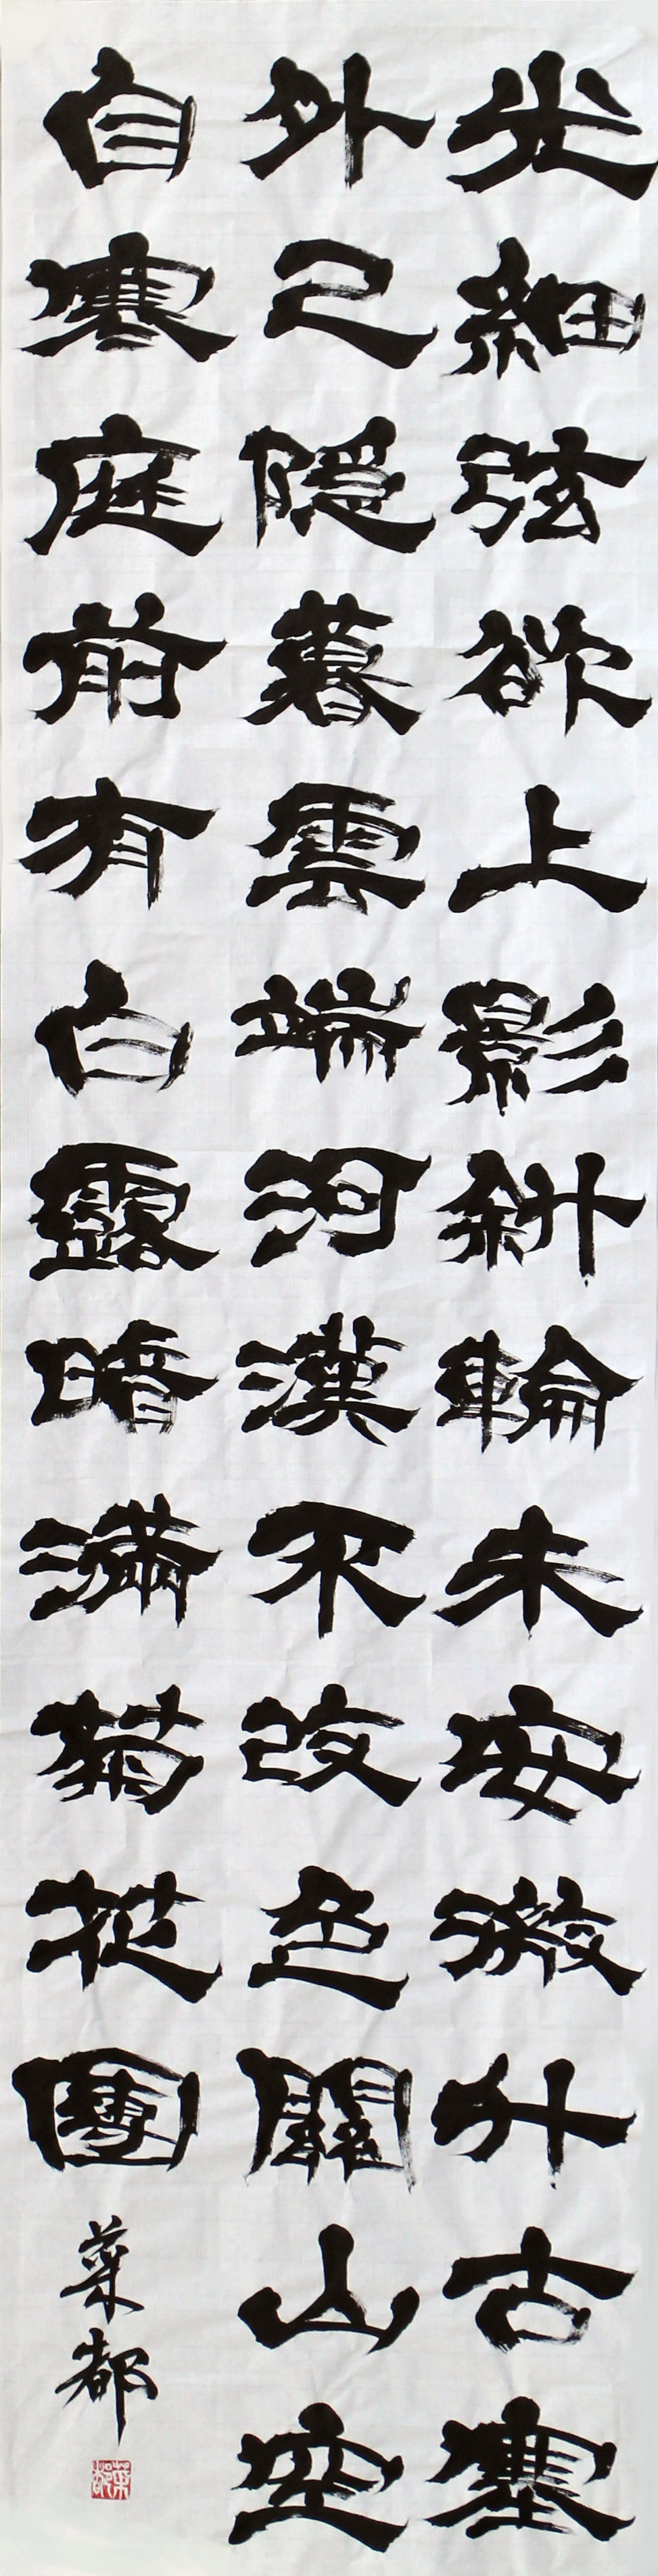 光細弦欲上影斜輪未安微升古塞
外已隱暮雲端河漢不改色關山空
自寒庭前有白露暗滿菊花團
菜都